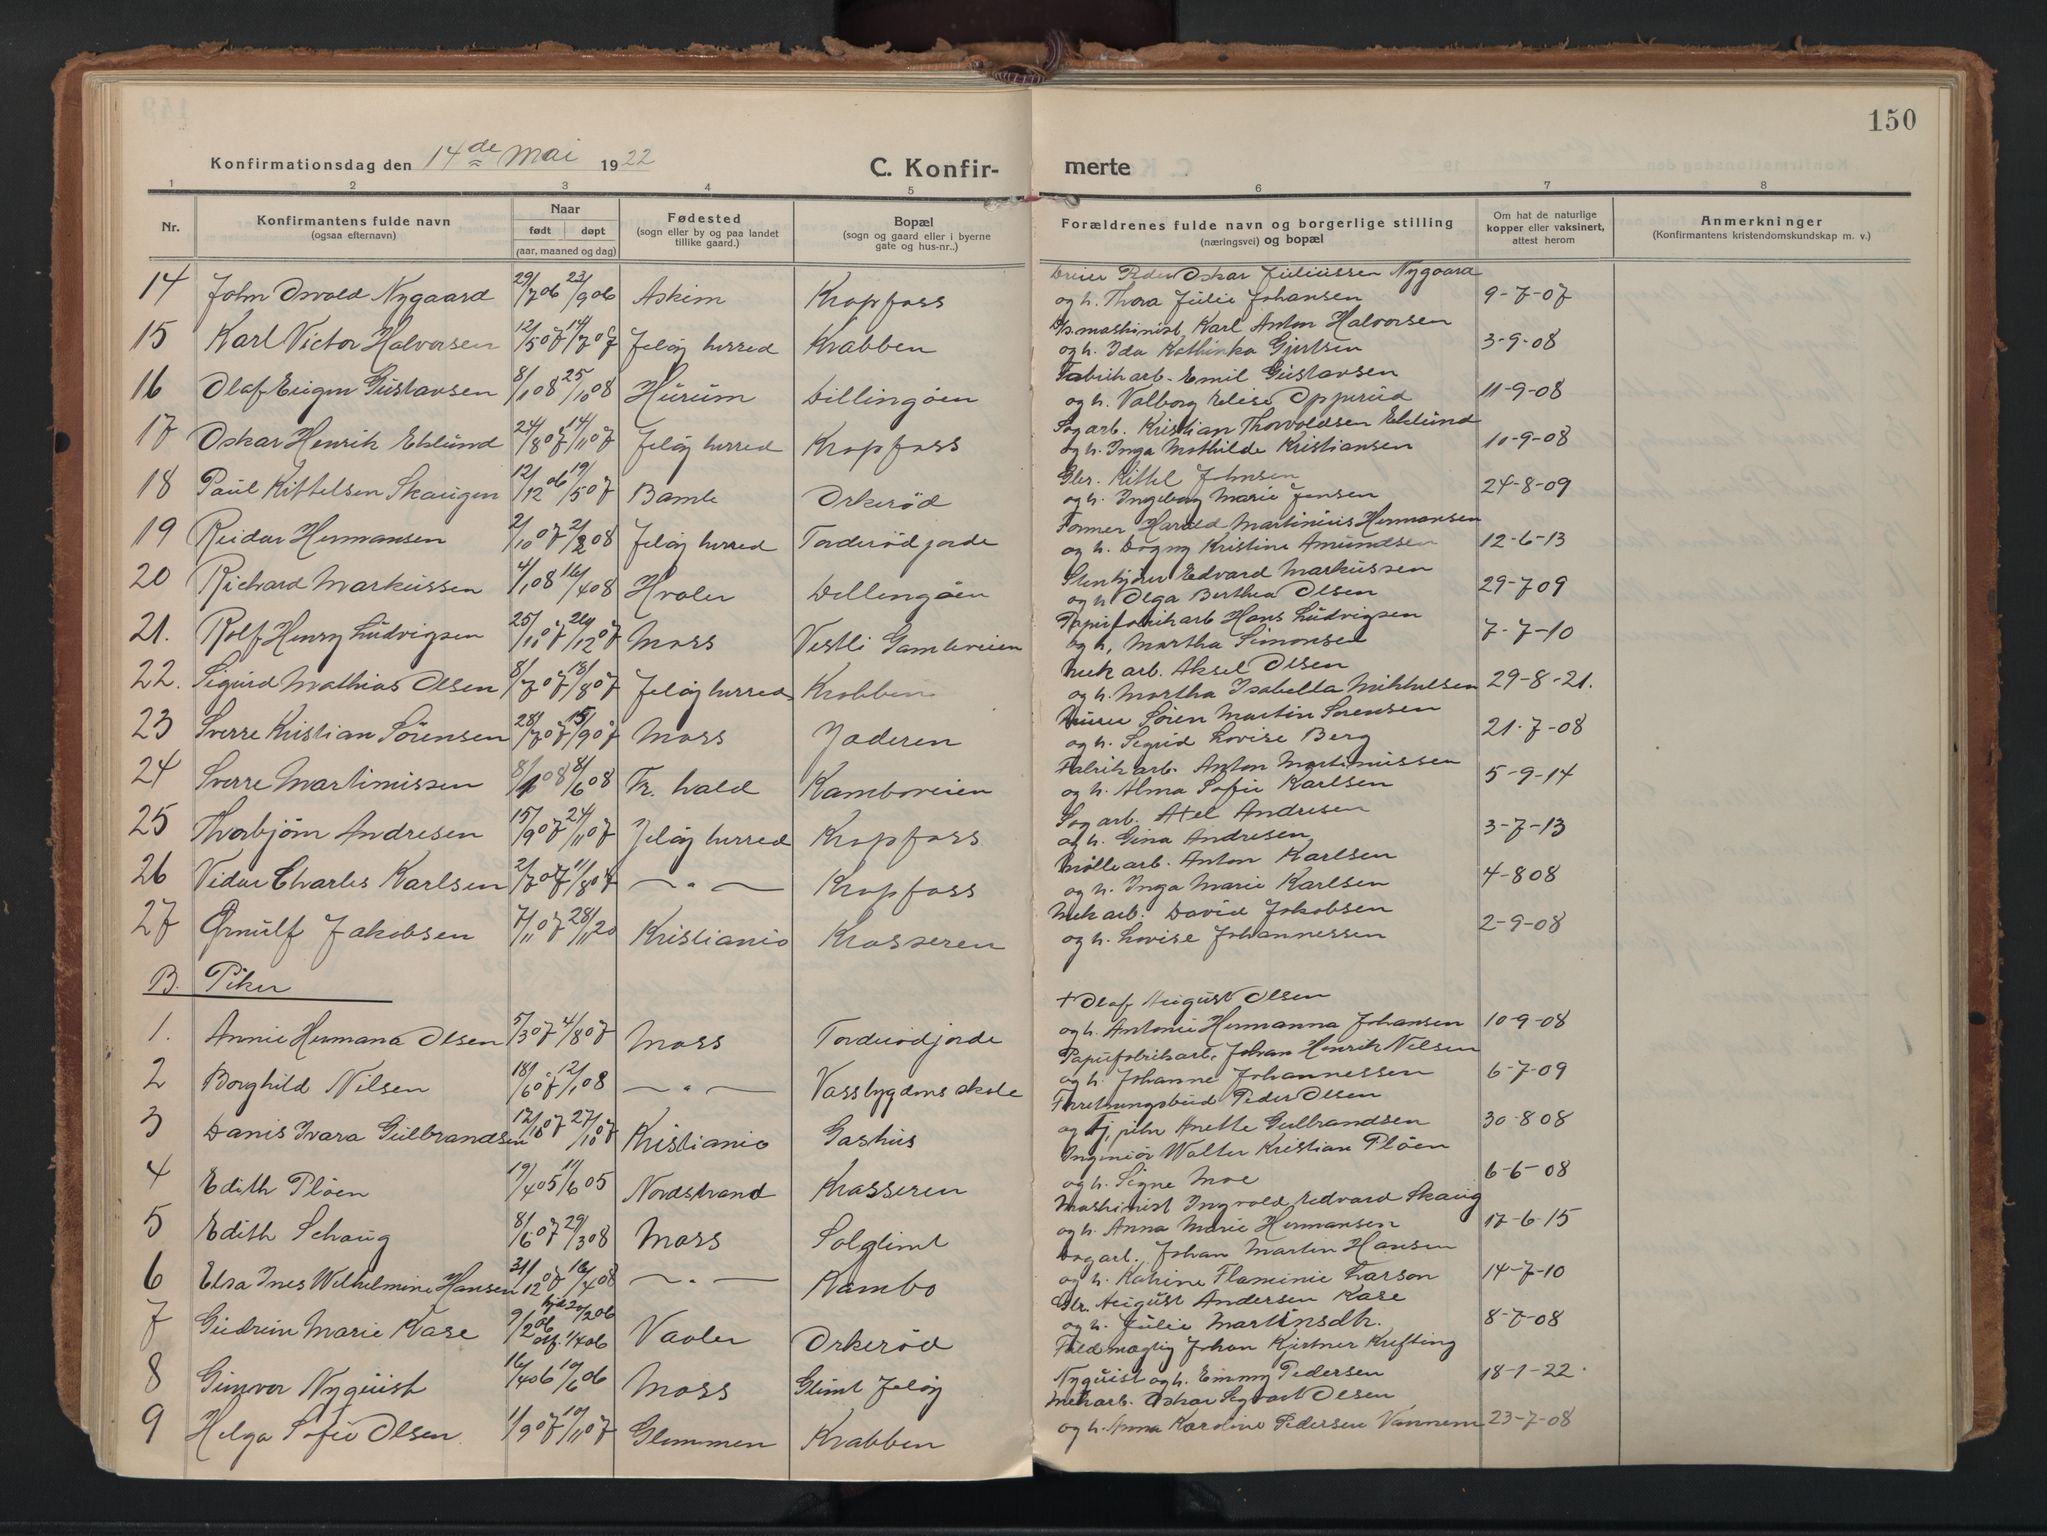 150
Konfirmationsdag den 14de Mai 1922 C. Konfirmerte
1 2 3 4 5 6 7 8
Nr. Konfirmantens fulde navn (ogsaa efternavn) Naar født døpt (aar, maaned og dag) Fødested (sogn eller by og paa landet tillike gaard.) Bopæl (sogn og gaard eller i byerne gate og hus-nr.) Forældrenes fulde navn og borgerlige stilling (næringsvei) og bopæl Om hat de naturlige kopper eller vaksinert, attest herom Anmerkninger (Konfirmantens kristendomskundskap m. v.)
14 John Osvald Nygaard 29/7 06 23/9 06 Askim Kropfoss Dreier Peder Oskar Juliussen Nygaard
og h. Thora Julie Johansen 9-7-07
15 Karl Victor Halvorsen 12/5 07 14/7 07 Jeløy herred Krabben D/s. maskinist Karl Anton Halvorsen
og h. Ida Kathinka Gjertsen 3-9-08
16 Olaf Eugen Gustavsen 8/1 08 25/10 08 Hurum Dillingøen Fabrikarb. Emil Gustavsen
og h. Valborg Elise Opperud 11-9-08
17 Oskar Henrik Eklund 24/8 07 14/11 07 Jeløy herred Kropfoss Sagarb. Kristian Thorvaldsen Eklund
og h. Inga Mathilde Kristiansen 10-9-08
18 Paul Kittelsen Skaugen 12/12 06 19/5 07 Bamle Orkerød Gbr. Kittel Johnsen
og h. Ingeborg Marie Jensen 24-8-09
19 Reidar Hermansen 2/10 07 2/2 08 Jeløy herred Torderødjorde Former Harald Martinius Hermansen
og h. Dagny Kristine Amundsen 12-6-13
20 Richard Markussen 4/1 08 16/4 08 Hvaler Dillingøen Stenhjører Edvard Markussen
og h. Olga Berthea Olsen 29-7-09
21. Rolf Henry Ludvigsen 25/11 07 24/12 07 Moss Vestli Gamleveien Papirfabrikarb Hans Ludvigsen
og h. Martha Simonsen 7-7-10
22. Sigurd Mathias Olsen 8/7 07 18/8 07 Jeløy herred Krabben Mek arb. Aksel Olsen
og h. Martha Isabella Mikkelsen 29-8-21.
23 Sverre Kristian Sørensen 28/7 07 15/9 07 Moss Jaderen Murer Søren Martin Sørensen
og h. Sigrid Lovise Berg 21-7-08
24 Sverre Martinussen 8/1 08 8/6 08 Fr. hald Kamboveien Fabrikarb. Anton Martinussen
og h. Alma Sofie Karlsen 5-9-14
25 Thorbjørn Andresen 15/9 07 24/11 07 Jeløy herred Kropfoss Sagarb. Axel Andresen
og h. Gina Andresen 3-7-13
26 Vidar Charles Karlsen 2/7 07 11/8 07 — " — Kropfoss Møllearb. Anton Karlsen
og h. Inga Marie Karlsen 4-8 08
27 Ørnulf Jakobsen 7/11 07 28/11 20 Kristiania Krosseren Mek arb. David Jakobsen
og h. Lovise Johannessen 2-9-08
B. Piker
1. Annie Hermana Olsen 5/3 07 4/8 07 Moss Torderødjorde + Olaf August Olsen
og h. Antonie Hermanna Johansen 10-9-08
2 Borghild Nilsen 18/6 07 12/1 08 — " — Vassbygdens skole Papirfabrikarb. Johan Henrik Nilsen
og h. Johanne Johannessen 6-7-09
3 Danis Ivara Gulbrandsen 17/10 07 27/10 07 Kristiania Gashus Forretningsbud Peder Olsen
og Tj. pike Anette Gulbrandsen 30-8 08
4 Edith Pløen 19/4 05 11/6 05 Nordstrand Krosseren Ingeniør Walter Kristian Pløen
og h. Signe Moe 6-6-08
5 Edith Schaug 8/6 07 29/3 08 Moss Solglimt Maskinist Ingvald Edvard Skaug
og h. Anna Marie Hermansen 17-6-15
6 Elsa Ines Wilhelmine Hansen 31/12 07 16/4 08 — " — Kambo Sogarb. Johan Martin Hansen
og h. Katrine Flaminie Larson 14-7-10
7 Gudrun Marie Kase 9/2 06 hjd 20/2 06 off. 1/4 06 Vaaler Orkerød Gbr. August Andersen Kase
og h. Julie Martinsdh. 8-7-08
8 Gunvor Nyquist 16/4 06 10/6 06 Moss Glimt Jeløy Fuldmægtig Johan Kjertner Krefting
Nyquist og h. Emmy Pedersen 18-1-22.
9 Helga Sofie Olsen 1/9 07 10/11 07 Glemmen Krabben Mekarb. Oskar Sigvart Olsen
og h. Anna Karoline Pedersen Vannem 23-7-08